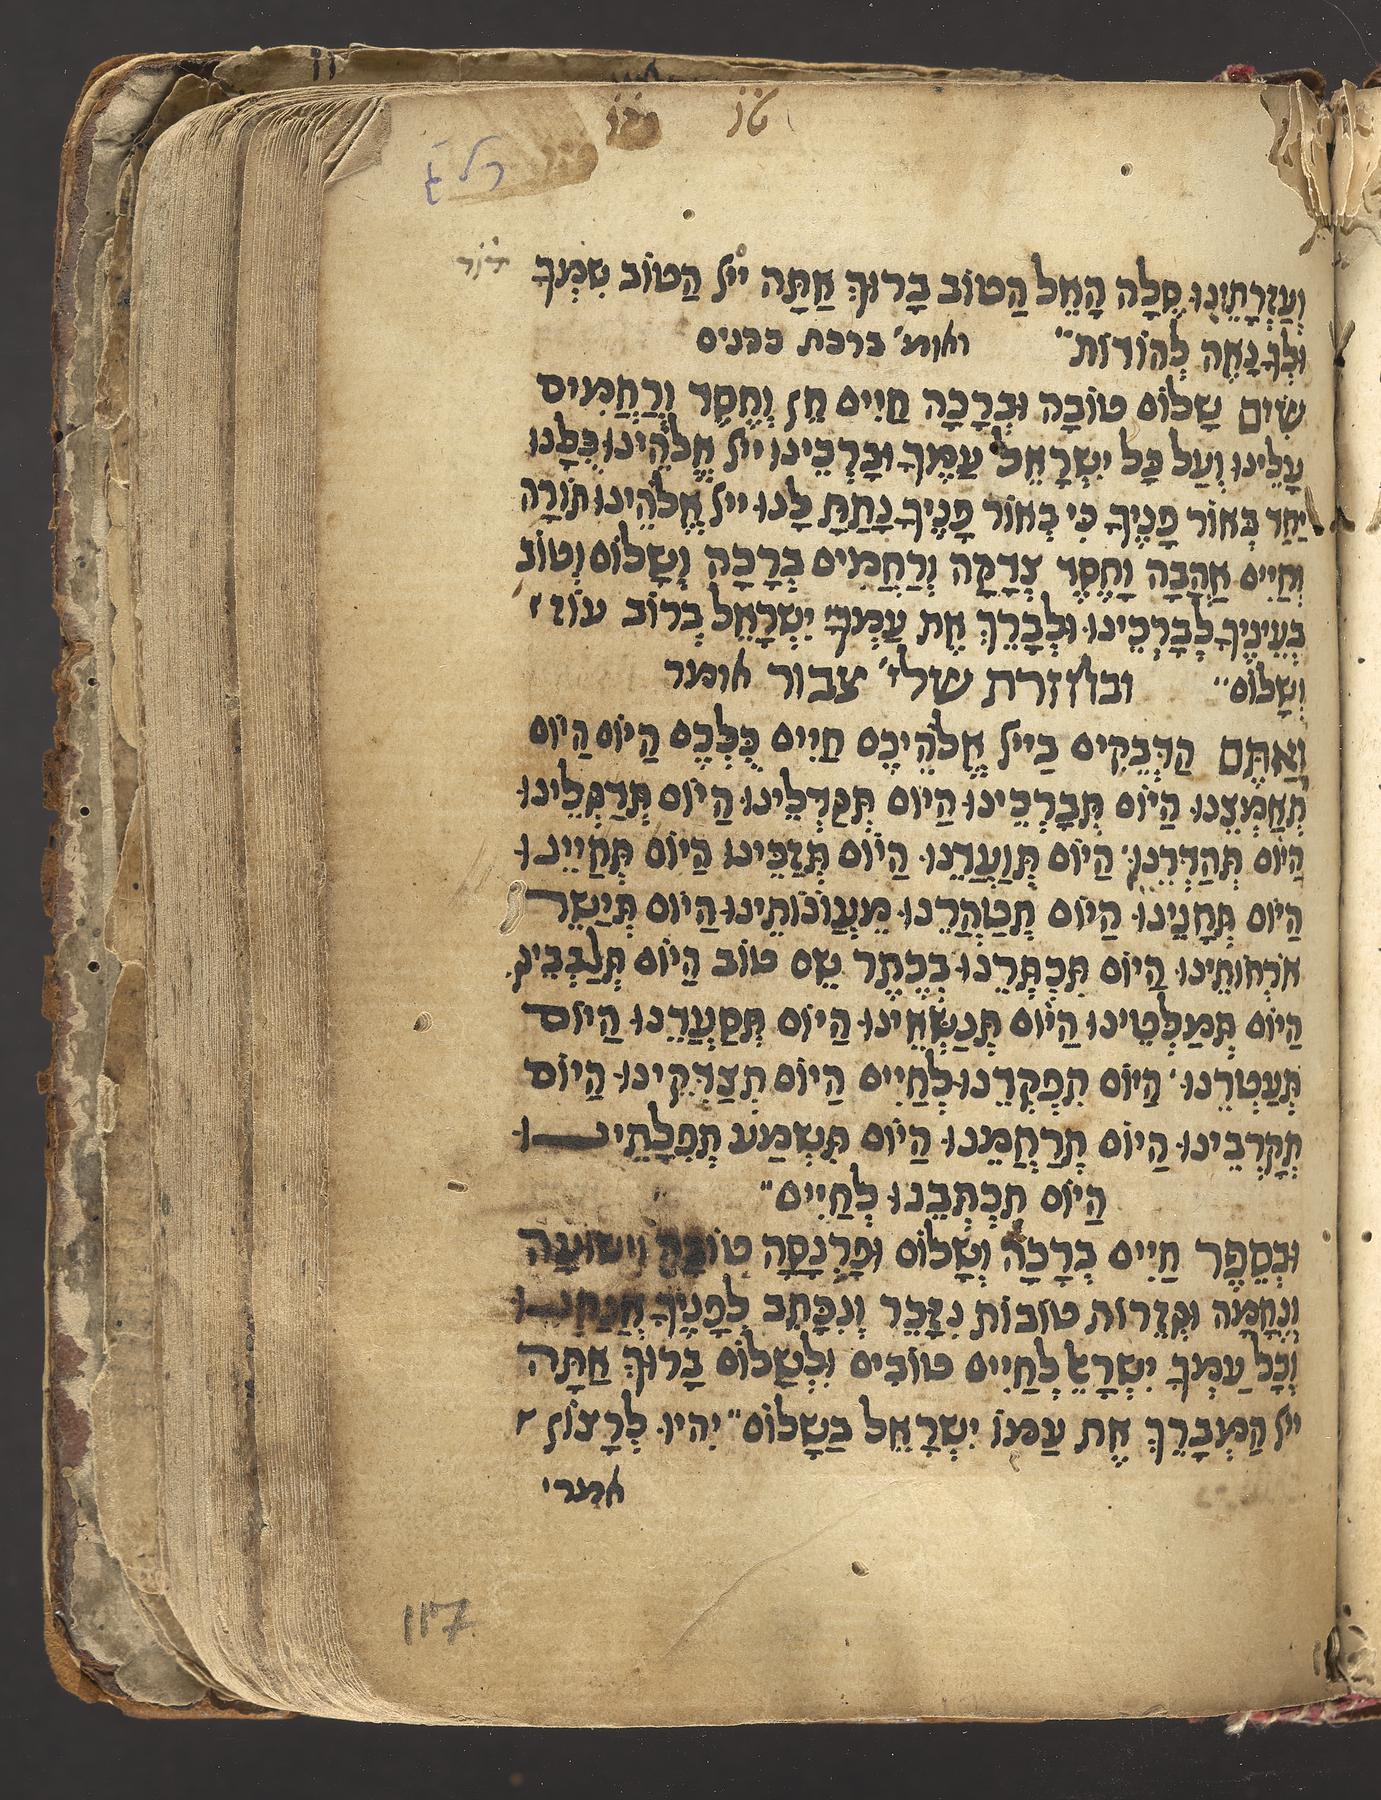 וְעֶזְרָתֵינוּ סֶלָה הָאֵל הַטוֹב בָרוּךְ אַתָּה ייָ הַטוֹב שִמְךָ
וּלְךָ נָאֶה לְהוֹדוֹת׃
ואומ' ברכת כהנים
שִׂים שָלוֹם טוֹבָה וּבְרָכָה חַיִים חֵן וְחֶסֶד וְרַחֲמִים
עָלֵינוּ וְעַל כָּל יִשְרָאֵל עַמֶךָ וּבָרְכֵינוּ ייָ אֱלֹהֵינוּ כֻּלָנוּ
יַחַד בְּאוֹר פָנֶיךָ כִּי בְאוֹר פָנֶיךָ נָתַתָּ לָנוּ ייָ אֱלֹהֵינוּ תוֹרָה
וְחַיִים אַהֲבָה וָחֶסֶד צְדָקָה וְרַחֲמִים בְּרָכָה וְשָלוֹם וְטוֹב
בְּעֵינֶיךָ לְבָרְכֵינוּ וּלְבָרֵךְ אֶת עַמְךָ יִשְרָאֵל בְרוֹב עוֹז
וְשָלוֹם׃
ובחזרת שלי' צבור אומר
וְאַתֶּם הַדְּבֵקִים בַייָ אֱלֹהֵיכֶם חַיִים כֻּלְכֶם הַיוֹם הַיוֹם
תְּאַמְּצֵנוּ הַיוֹם תְּבָרְכֵינוּ הַיוֹם תְּגַדְּלֵינוּ הַיוֹם תְּדַגְּלֵינוּ
הַיוֹם תְּהַדְּרֵנוּ הַיוֹם תְּוַעֲדֵנוּ הַיוֹם תְּזַכֵּינוּ הַיוֹם תְּחַיֵינוּ
הַיוֹם תְּחָנֵינוּ הַיוֹם תְּטַהֲרֵנוּ מֵעֲוֹנוֹתֵינוּ הַיוֹם תְּיַשֵר
אֹרְחוֹתֵינוּ הַיוֹם תִּכְתְּרֵנוּ בְּכֶתֶר שֵם טוֹב הַיוֹם תְּלַבְּבֵינוּ
הַיוֹם תְּמַלְּטֵינוּ הַיוֹם תְּנַשְּׂאֵינוּ הַיוֹם תְּסַעֲדֵנוּ הַיוֹם
תְּעַטְּרֵנוּ הַיוֹם תִּפְקְדֵנוּ לְחַיִים הַיוֹם תְּצַדְּקֵינוּ הַיוֹם
תְּקָרְבֵינוּ הַיוֹם תְּרַחֲמֵנוּ הַיוֹם תִּשְמַע תְּפִלָתֵינוּ
הַיוֹם תִּכְתְּבֵנוּ לְחַיִים׃
וּבְסֵפֶר חַיִים בְּרָכָה וְשָלוֹם וּפַרְנָסָה טוֹבָה וִישוּעָה
וְנֶחָמָה וּגְזֵרוֹת טוֹבוֹת נִזָּכֵר וְנִכָּתֵב לְפָנֶיךָ אֲנַחְנוּ
וְכָל עַמְּךָ יִשְרָאֵל לְחַיִים טוֹבִים וּלְשָלוֹם בָרוּךְ אַתָּה
ייָ הַמְבָרֵךְ אֶת עַמּוֹ יִשְרָאֵל בַשָלוֹם׃ יִהְיוּ לְרָצוֹן
אמרי
117